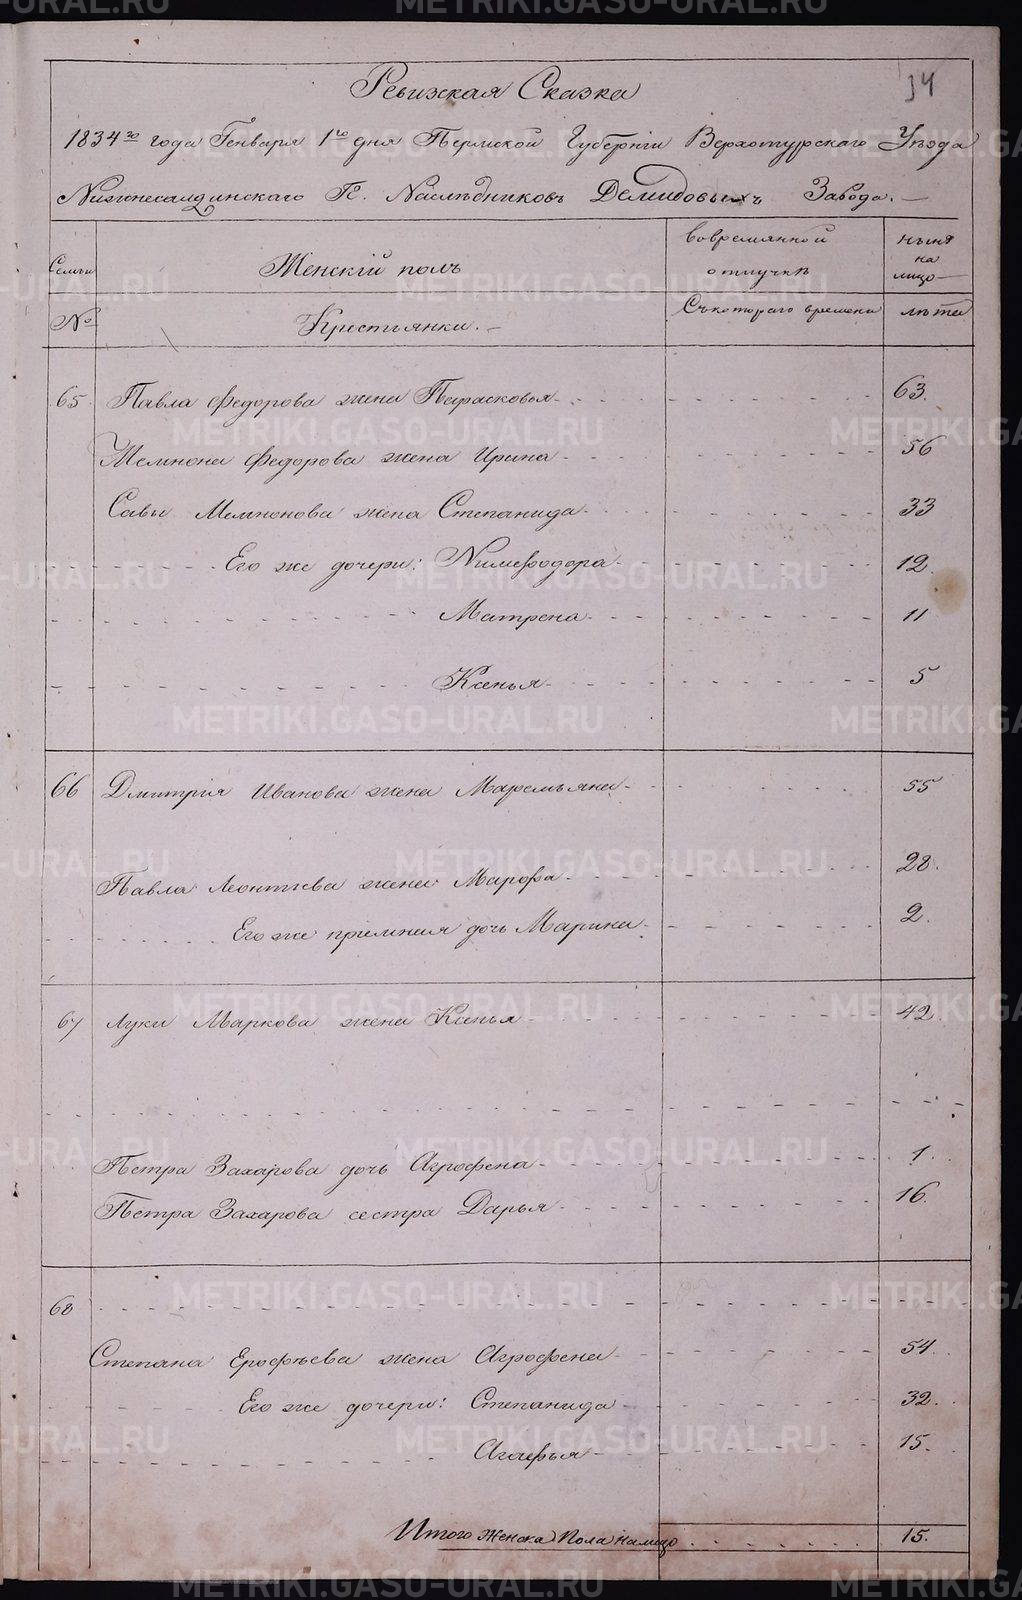 34
Ревижская Сказка
1834го года Генваря 1го дня Пермской Губернiи Верхотурскаго Уѣзда
Нижнесалдинскаго Г. Наслѣдниковъ Демидовыхъ Завода.
Семьи
Женскiй полъ
во временной отлучкѣ
нынѣ на лицо
№
Крестьянки.
Съ котораго времени
лѣта
65 Павла Федорова жена Парасковья 63.
Мемнона Федорова жена Ирина 56
Савы Мемнонова жена Степанида 33
Его же дочери: Нимфодора 12.
Матрена 11
Ксенья 5
66 Дмитрiя Иванова жена Маремьяна 55
Павла Леонтьева жена Марфа 28.
Его же прiемная дочь Марина 2.
67 Луки Маркова жена Ксенья 42.
Петра Захарова дочь Агрофена 1.
Петра Захарова сестра Дарья 16.
68
Степана Ерофѣева жена Агрофена 54.
Его же дочери: Степанида 32.
Агафья 15.
Итого Женска Пола налицо 15.
METRIKI.GASO-URAL.RU